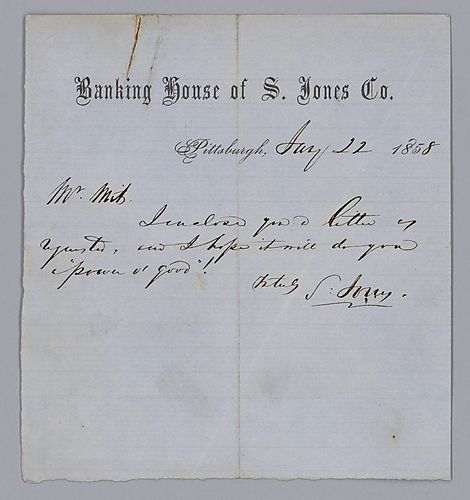 Banking House of S. Jones Co.
Pittsburgh, Jany 22 1858
Mr. Mit.
I enclose you a letter as
requested, and I hope it will do you
a "power o' good"!
S. Jones.